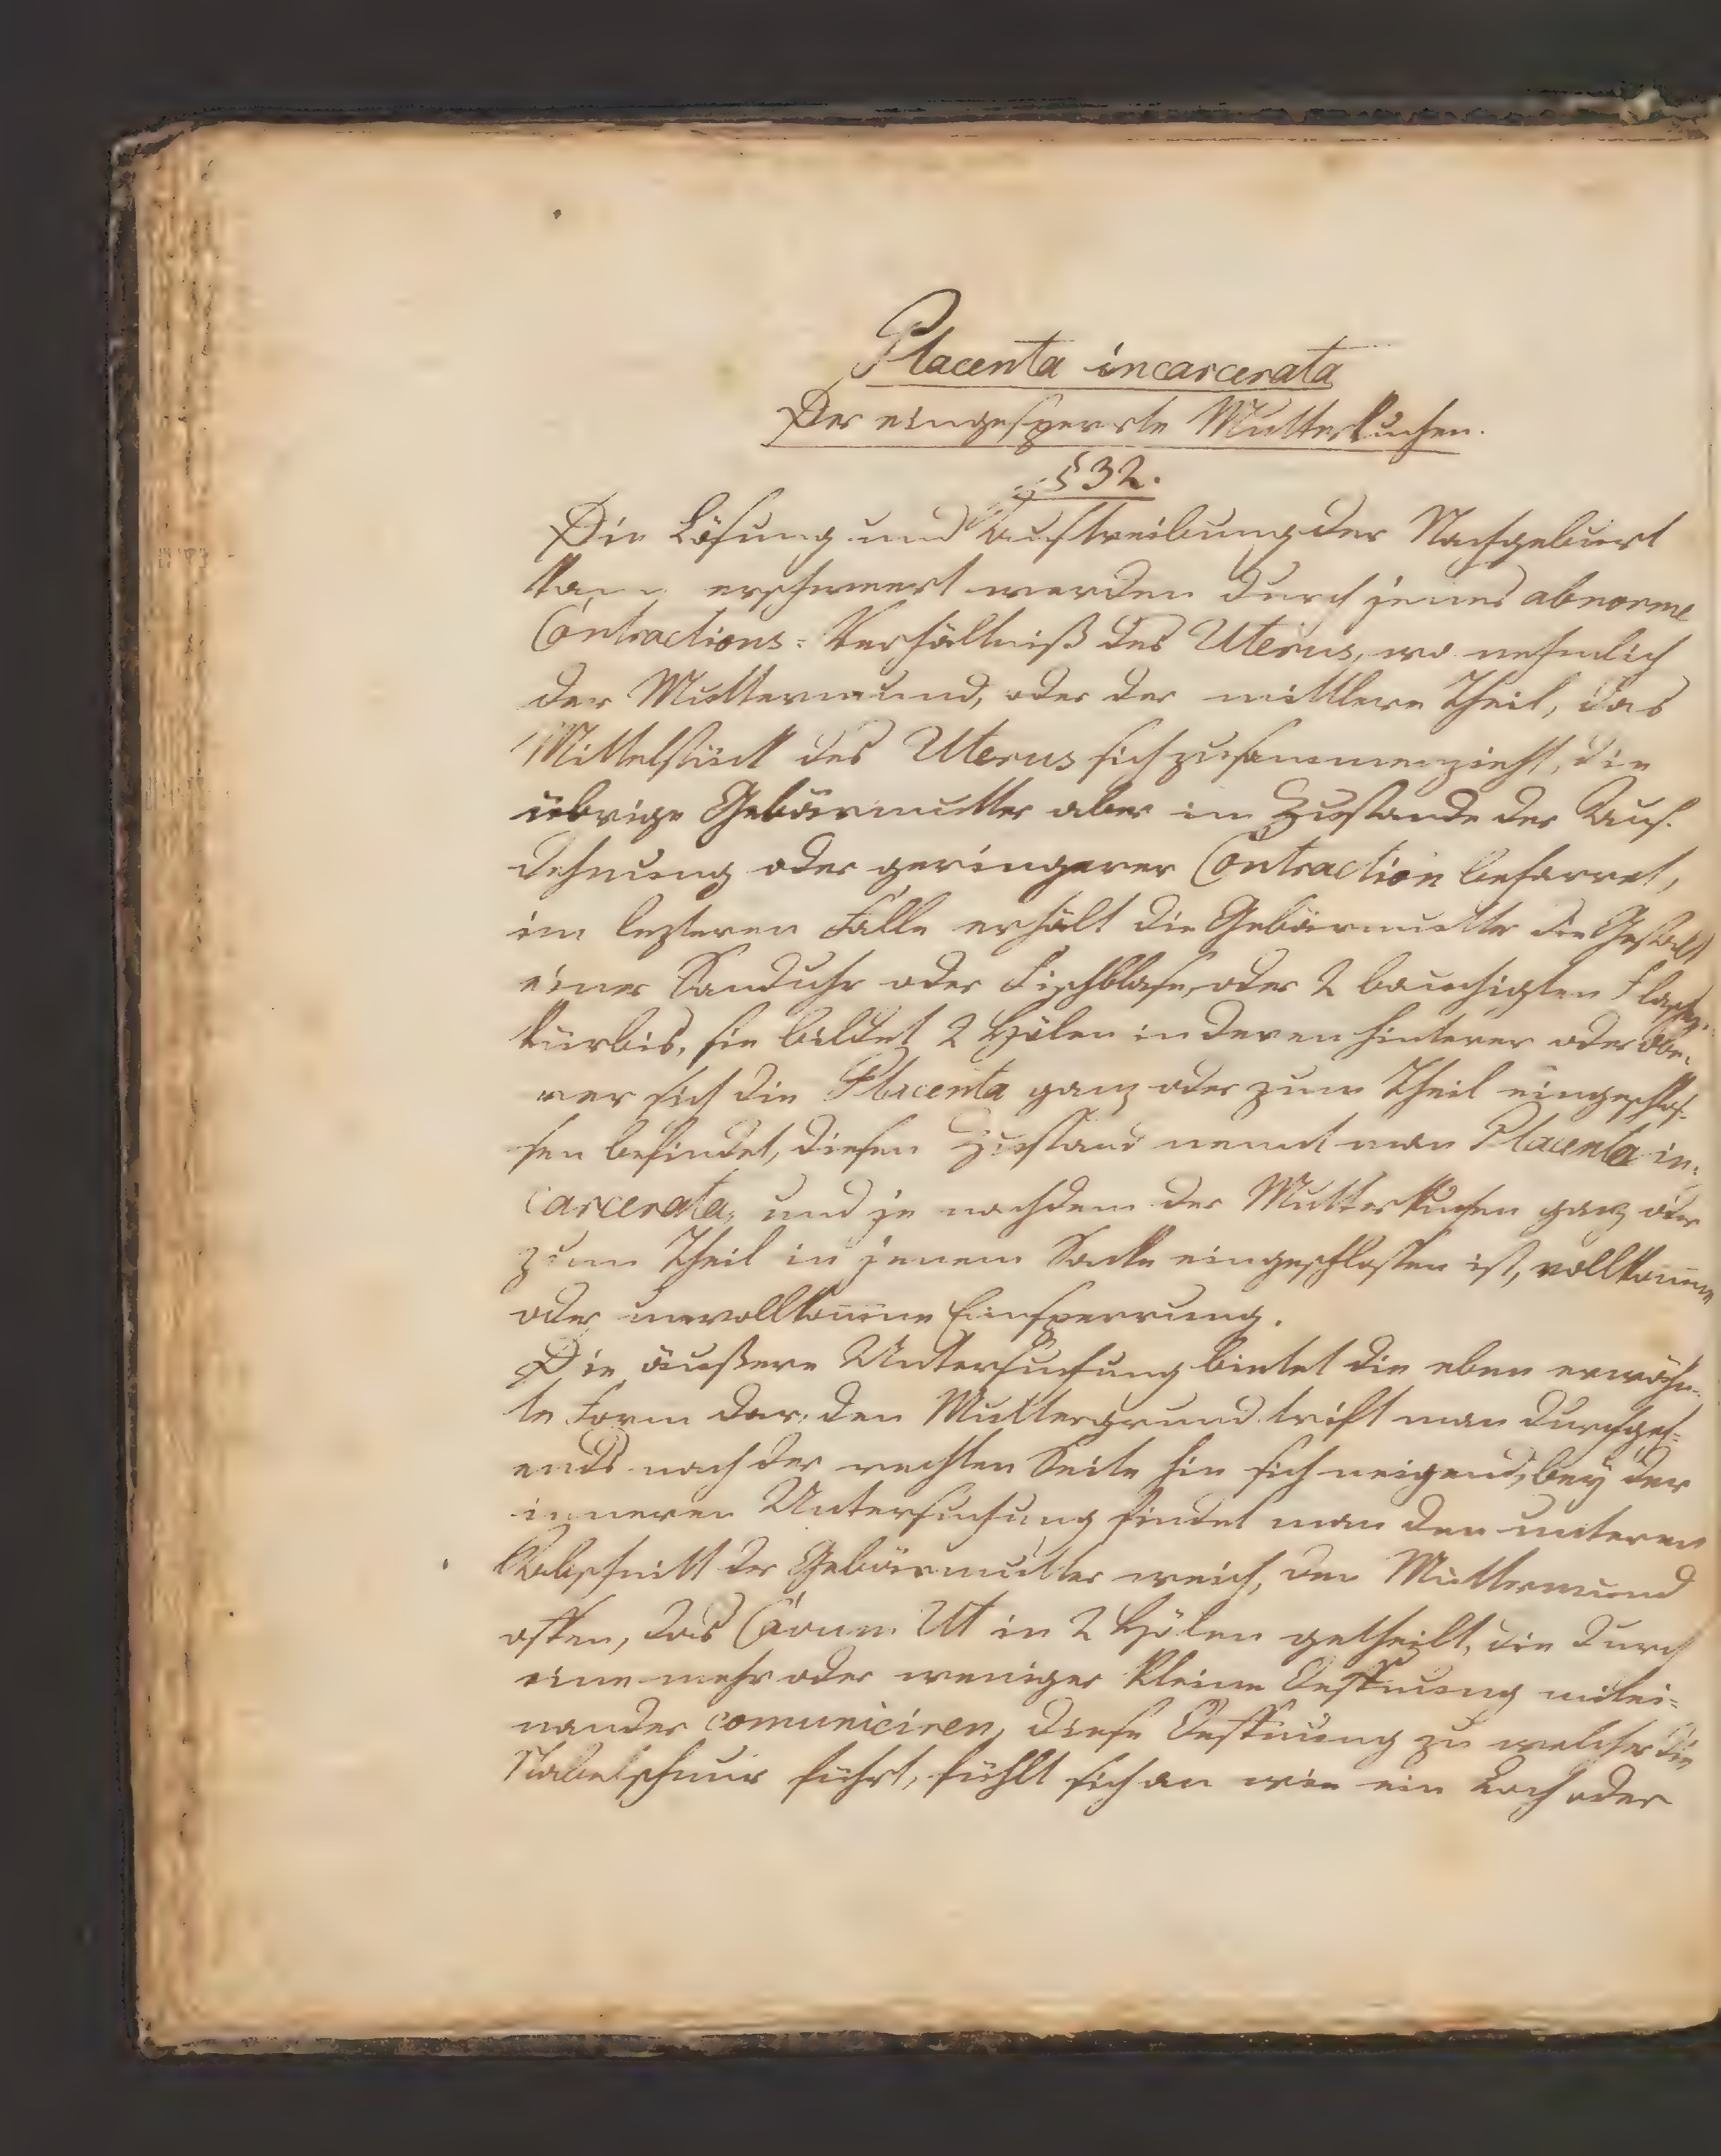 Placenta incarcerata
Der eingesperrte Mutterkuchen.
§ 32.
Die Lösung und Austreibung der Nachgeburt
kann erschwert werden durch jenes abnorme
Contractions-Verhältniß des Uterus, wo nehmlich
der Muttermund, oder der mittlere Theil, das
Mittelstück des Uterus sich zusammenzieht, die
übrige Gebärmutter aber im Zustande der Aus-
dehnung oder geringerer Contraction beharret,
im lezteren Falle erhält die Gebärmutter die Gestalt
einer Sanduhr oder Fischblase, oder 2 bauchigten Flaschen-
kürbis, sie bildet 2 Hölen in deren hinterer oder obe-
rer sich die Placenta ganz oder zum Theil eingeschlos-
sen befindet, diesen Zustand nennt man Placenta in-
carcerata, und je nachdem der Mutterkuchen ganz oder
zum Theil in jenem Sacke eingeschlossen ist, vollkomne
oder unvollkomne Einsperrung.
Die äußere Untersuchung bietet die eben erwähn-
te Form dar, den Muttergrund trift man durchgeh-
ends nach der rechten Seite hin sich neigend, bey der
inneren Untersuchung findet man den unteren
Abschnitt der Gebärmutter weich, den Muttermund
offen, das Cavum Ut in 2 Hölen getheilt, die durch
eine mehr oder weniger kleine Oeffnung mitei-
nander comuniciren, diese Oeffnung zu welcher die
Nabelschnur führt, fühlt sich an wie ein Loch oder